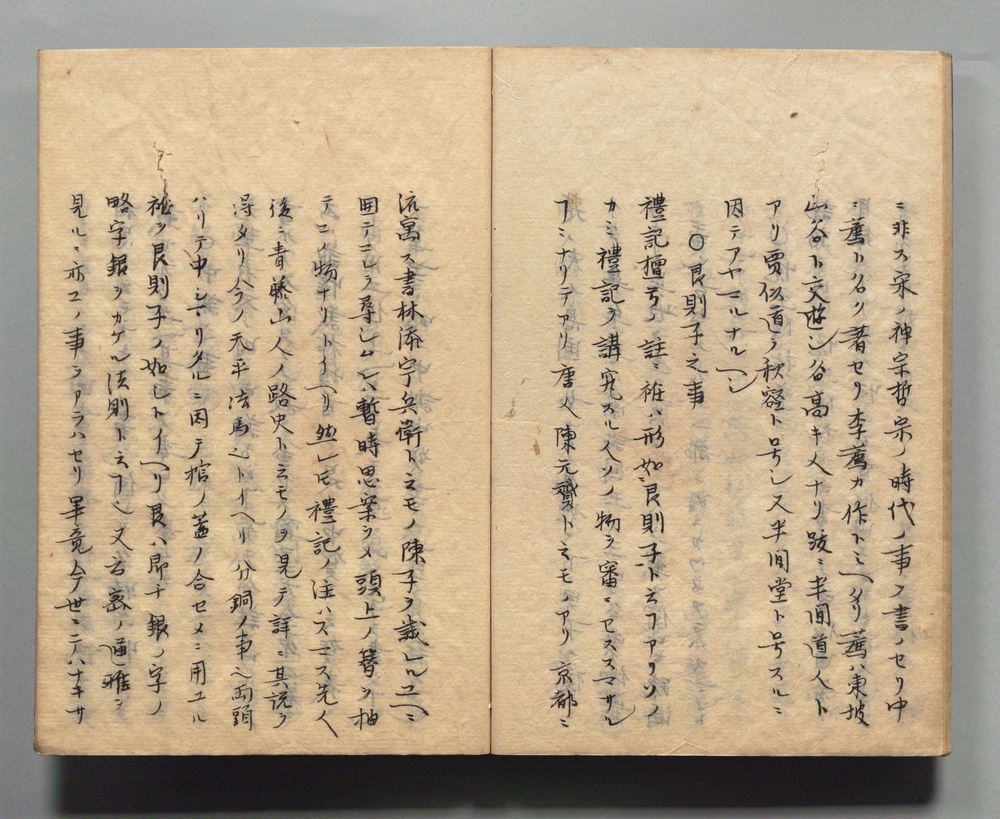 ニ非ス宋ノ神宗哲宗ノ時代ノ事ヲ書ノセリ中
ニ薦ト名ツク著セリ李薦カ作トミヘタリ薦ハ東坡
山谷ト交遊シ名高キ人ナリ跋ニ半間道人ト
アリ賈似道ヲ秋壑ト号シ又半間堂ト号スルニ
因テアヤマルナルヘシ
〇艮則子之事
禮記擅弓ノ註ニ衽ハ形如艮則子ト云フアリソノ
カミ禮記ヲ講究スル人ソノ物ヲ審ニセススマサル
フミナリテアリ唐人陳元贇ト云モノアリ京都ニ
流寓ス書林添字兵衛ト云モノ陳子ヲ識レルユヘニ
因テコレヲ尋シムレハ暫時思案シメ頭上ノ簪ヲ抽
テコノ物ナリトイヘリ然レ𪜈禮記ノ注ハスマス先人
後ニ青藤山人ノ路史ト云モノヲ見テ詳ニ其説ヲ
得タリ今ノ天平法馬トイヘリ分銅ノ事ヘ両頭
ハリテ中シマリタルニ因テ棺ノ蓋ノ合セメニ用ユル
衽ヲ艮則子ノ如シトイヘリ艮ハ即チ銀ノ字ノ
略字銀ヲカケル法則ト云フヘ又方密ノ通雅ヲ
見ルニ亦コノ事ヲアラハセリ畢竟今世ニテハナキサ